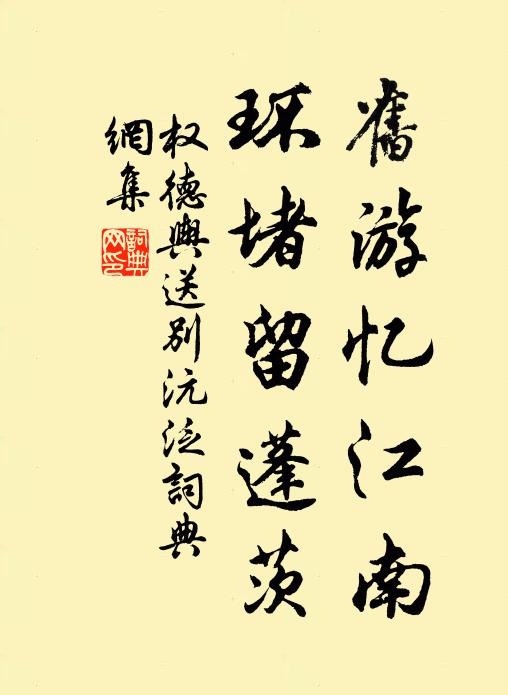 舊游忆江南
环堵留蓬茨
权德輿送别沅泛詞典
網集
詞典網印